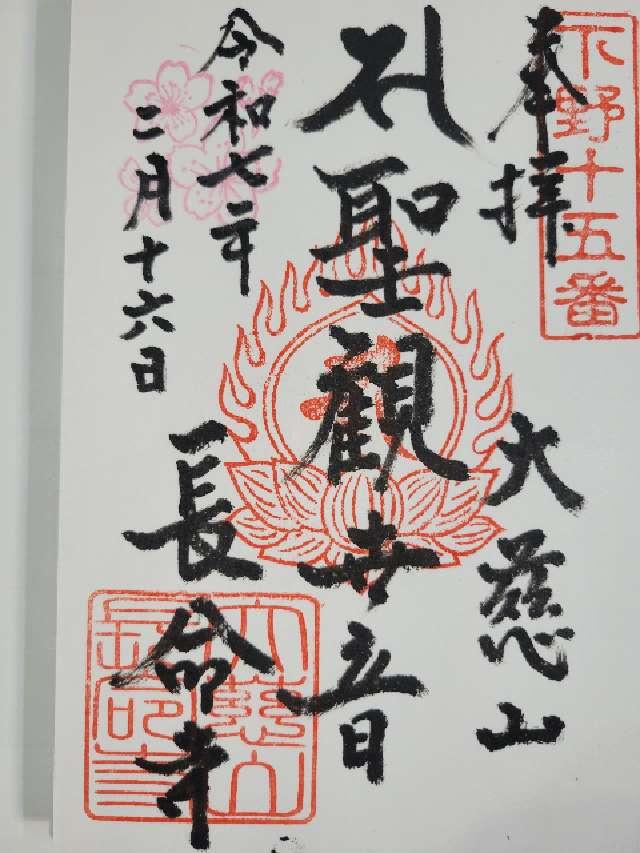 下野十五番
奉拝
大慈山
聖観世音
長命寺
令和七年
二月十六日